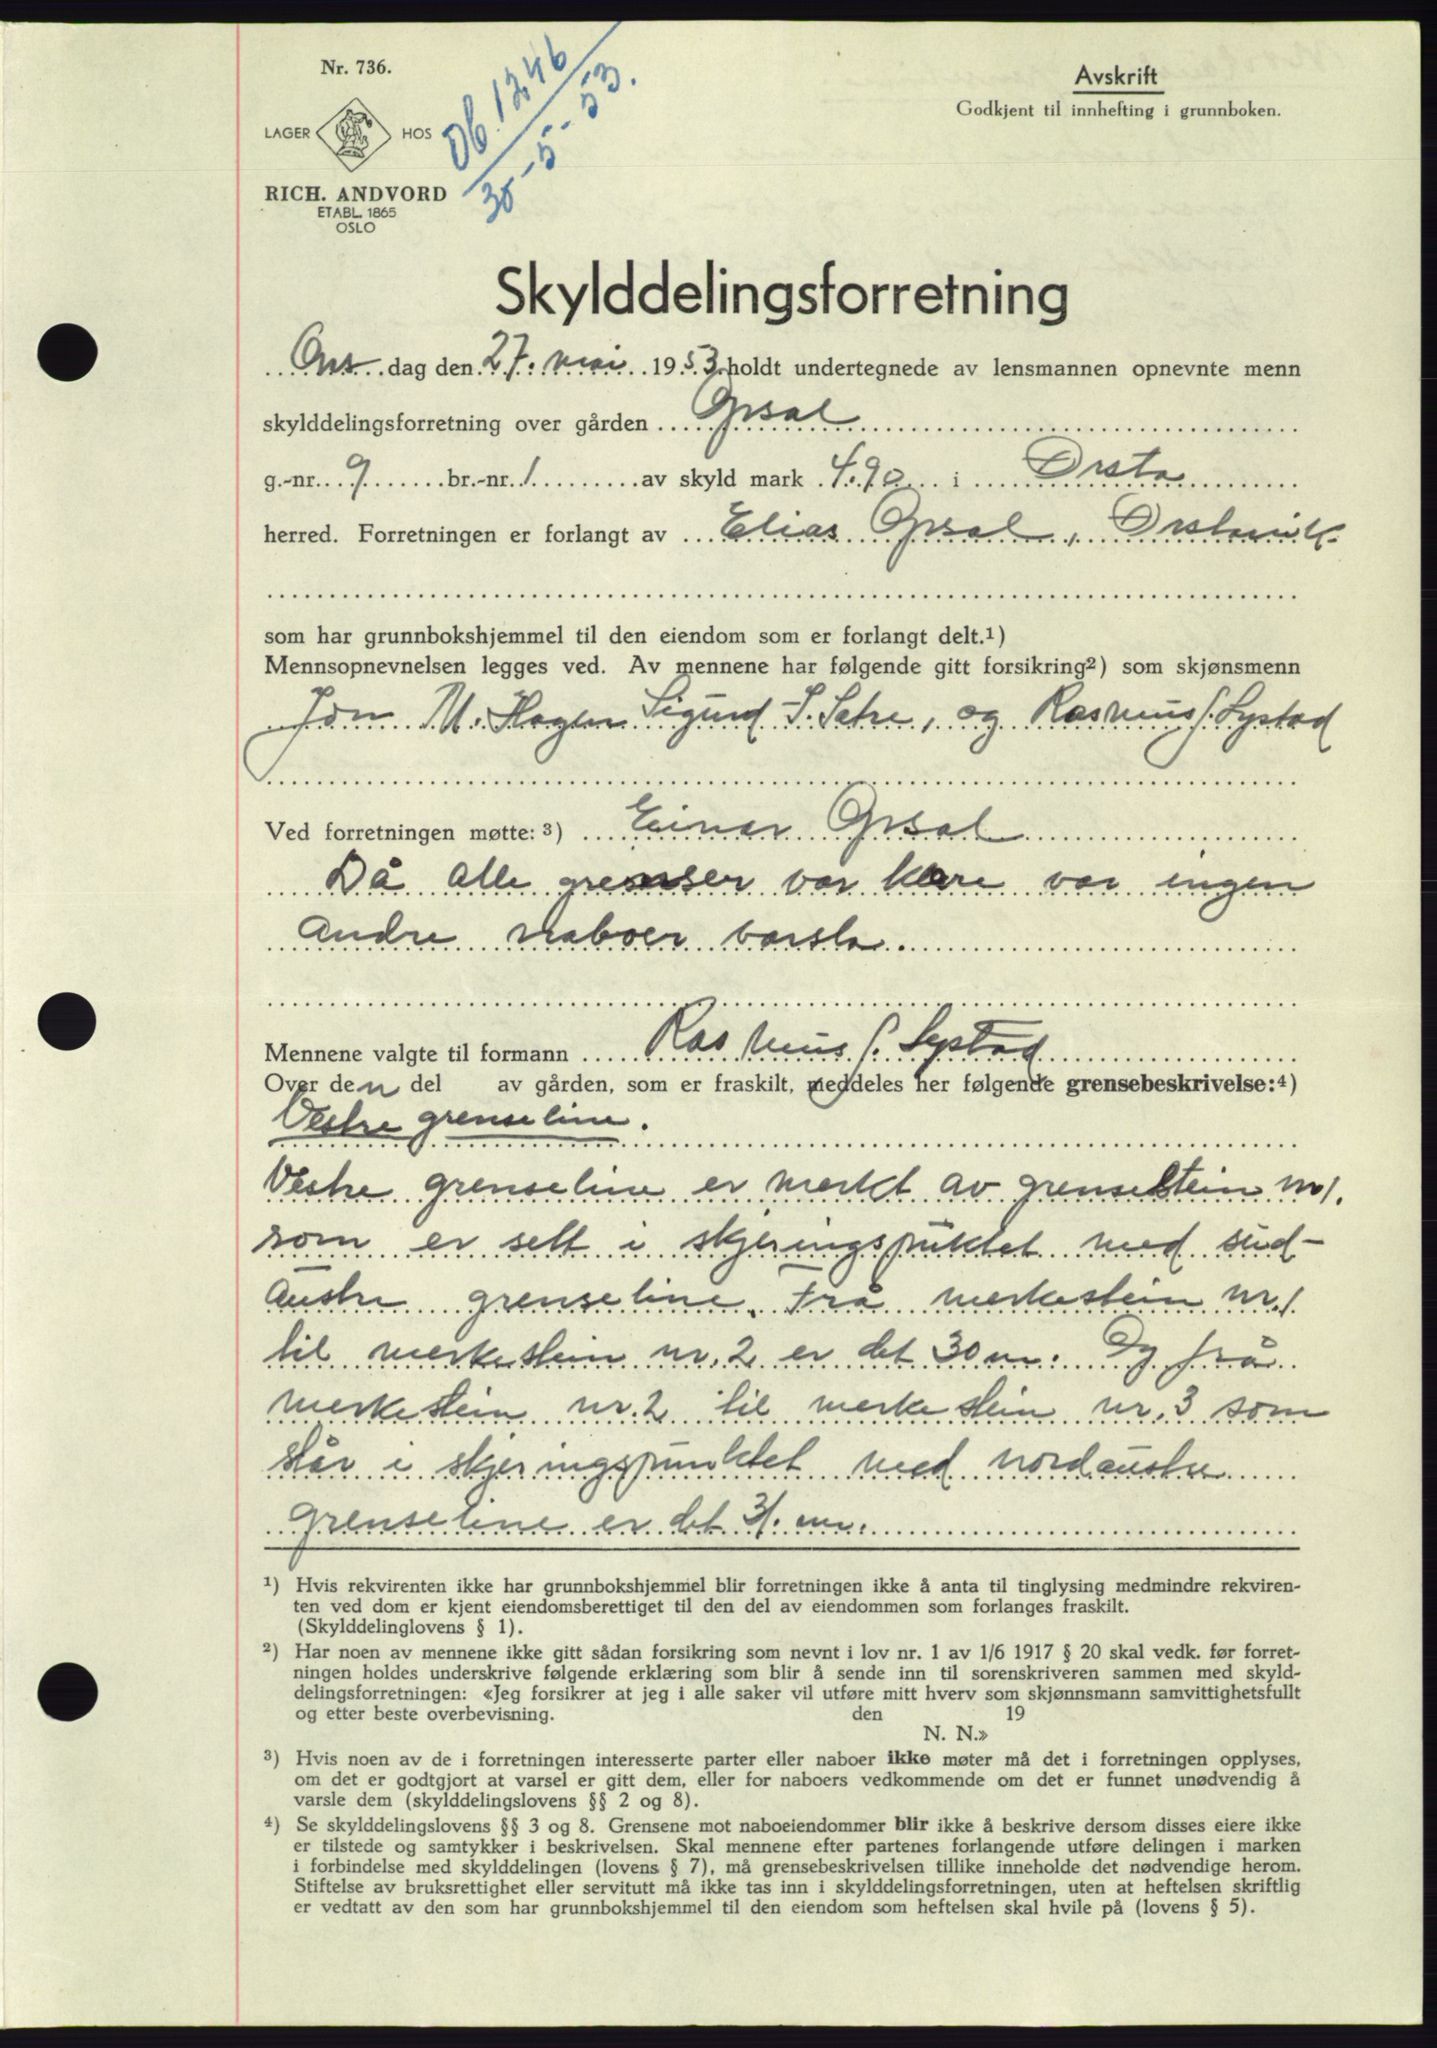 Nr. 736.
LAGER HOS
RICH. ANDVORD
ETABL. 1865
OSLO
Db. 1246
30-5-53.
Avskrift
Godkjent til innhefting i grunnboken.
Skylddelingsforretning
Ons dag den 27. mai 1953 holdt undertegnede av lensmannen opnevnte menn
skylddelingsforretning over gården Opsal
g.-nr. 9 br.-nr. 1 av skyld mark 4.90 i Ørsta
herred. Forretningen er forlangt av Elias Opsal, Ørstavik.
som har grunnbokshjemmel til den eiendom som er forlangt delt.¹)
Mennsopnevnelsen legges ved. Av mennene har følgende gitt forsikring²) som skjønsmenn
Jon M. Hagen Sigurd I. Sætre, og Rasmus J. Systad
Ved forretningen møtte: ³) Einar Opsal
Då alle grenser var klåre var ingen
andre naboer varsla.
Mennene valgte til formann Rasmus J. Systad
Over den del av gården, som er fraskilt, meddeles her følgende grensebeskrivelse:⁴)
Vestre grenseline.
Vestre grenseline er merkt av grensestein nr 1.
som er sett i skjeringspunktet med sud-
austre grenseline. Frå merkestein nr. 1
til merkestein nr. 2 er det 30 m. Og frå
merkestein nr. 2 til merkestein nr. 3 som
står i skjeringspunktet med nordaustre
grenseline er det 31. m.
¹) Hvis rekvirenten ikke har grunnbokshjemmel blir forretningen ikke å anta til tinglysing medmindre rekviren-
ten ved dom er kjent eiendomsberettiget til den del av eiendommen som forlanges fraskilt.
(Skylddelinglovens § 1).
²) Har noen av mennene ikke gitt sådan forsikring som nevnt i lov nr. 1 av 1/6 1917 § 20 skal vedk. før forret-
ningen holdes underskrive følgende erklæring som blir å sende inn til sorenskriveren sammen med skyld-
delingsforretningen: «Jeg forsikrer at jeg i alle saker vil utføre mitt hverv som skjønnsmann samvittighetsfullt
og etter beste overbevisning. den 19
N. N.»
³) Hvis noen av de i forretningen interesserte parter eller naboer ikke møter må det i forretningen opplyses,
om det er godtgjort at varsel er gitt dem, eller for naboers vedkommende om det er funnet unødvendig å
varsle dem (skylddelingslovens §§ 2 og 8).
⁴) Se skylddelingslovens §§ 3 og 8. Grensene mot naboeiendommer blir ikke å beskrive dersom disses eiere ikke
er tilstede og samtykker i beskrivelsen. Skal mennene efter partenes forlangende utføre delingen i marken
i forbindelse med skylddelingen (lovens § 7), må grensebeskrivelsen tillike inneholde det nødvendige herom.
Stiftelse av bruksrettighet eller servitutt må ikke tas inn i skylddelingsforretningen, uten at heftelsen skriftlig
er vedtatt av den som har grunnbokshjemmel til den eiendom som heftelsen skal hvile på (lovens § 5).